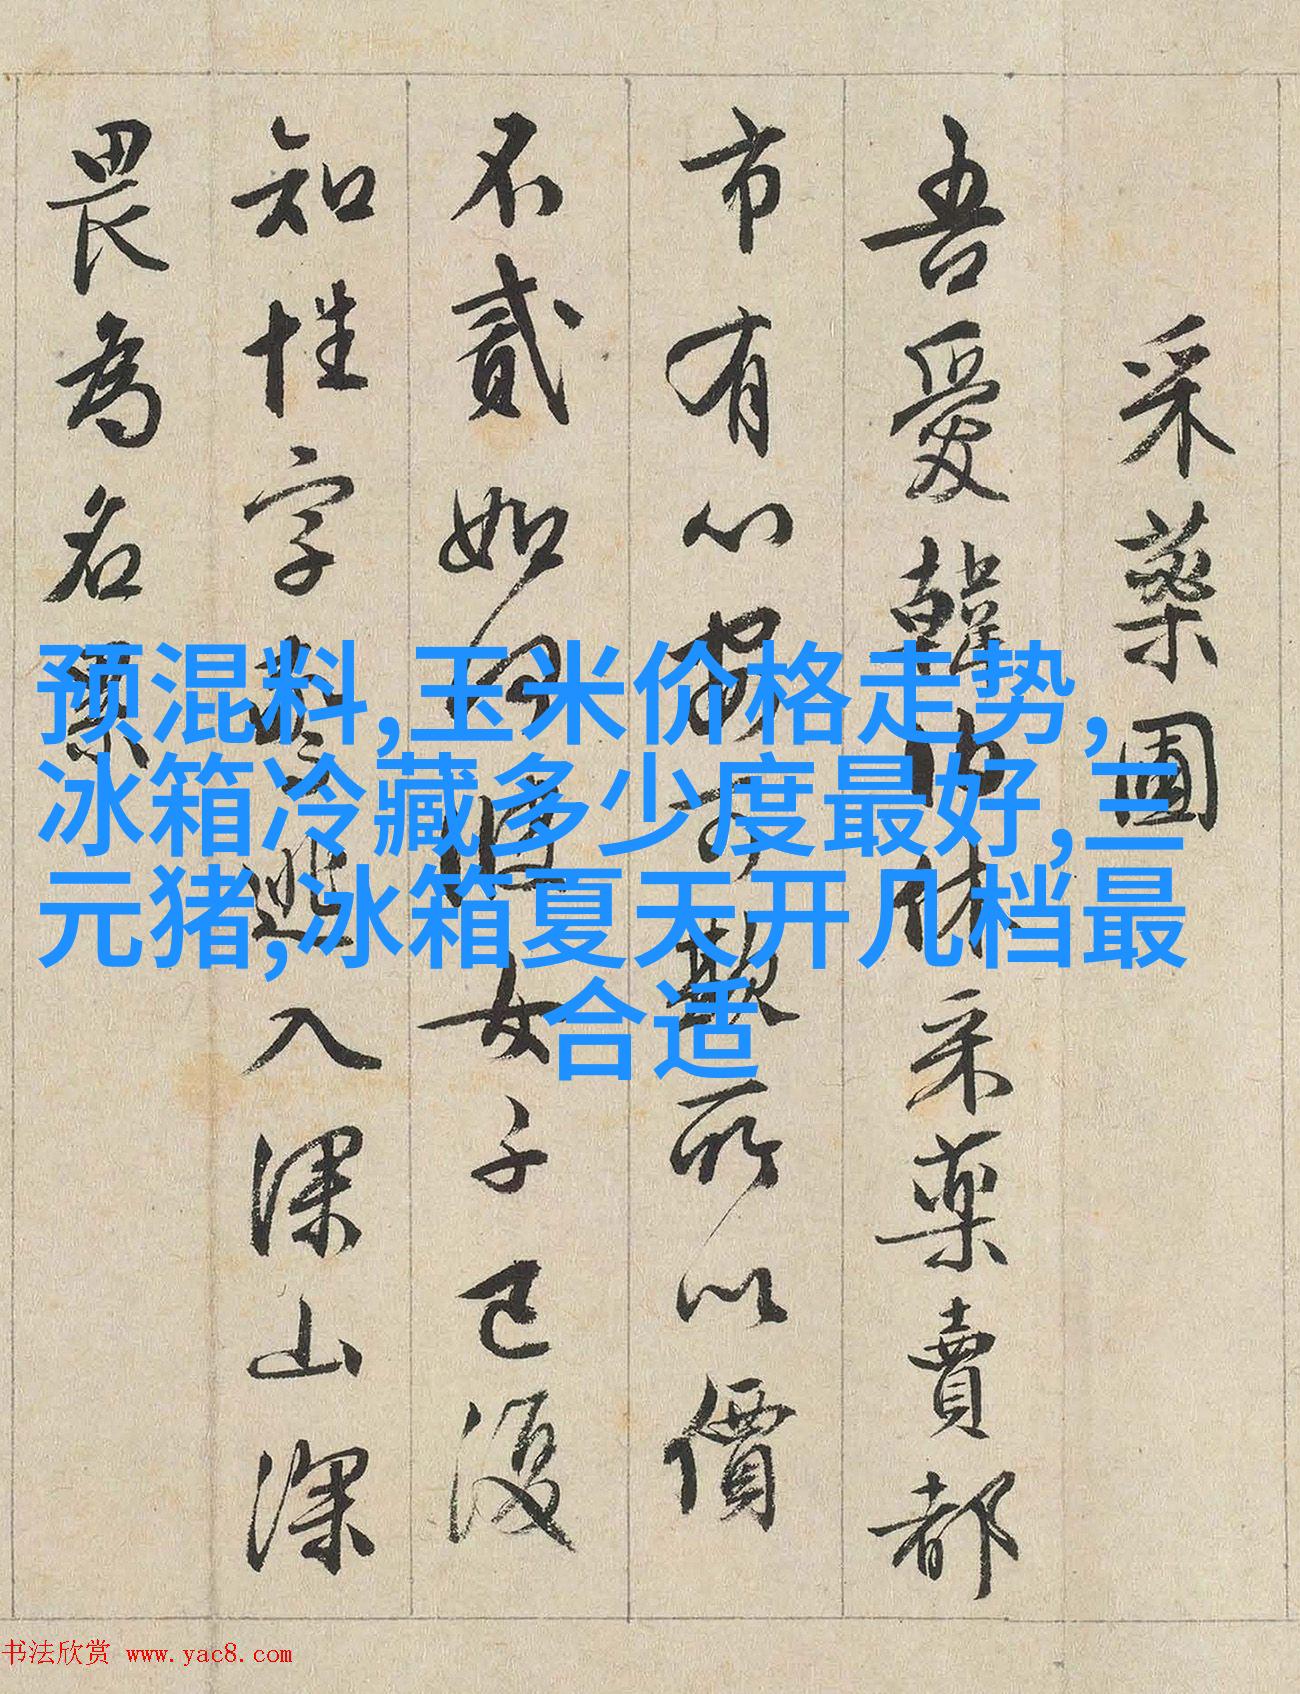 采藥圃
吾愛韓伯休采藥賣都
市有心安可欺所以價
不貳如何彼女子已復
知性字逃入深山深
畏為名累
预混料,玉米价格走势,
冰箱冷藏多少度最好,三
元猪,冰箱夏天开几档最
合适
书法欣赏 www.yac8.com